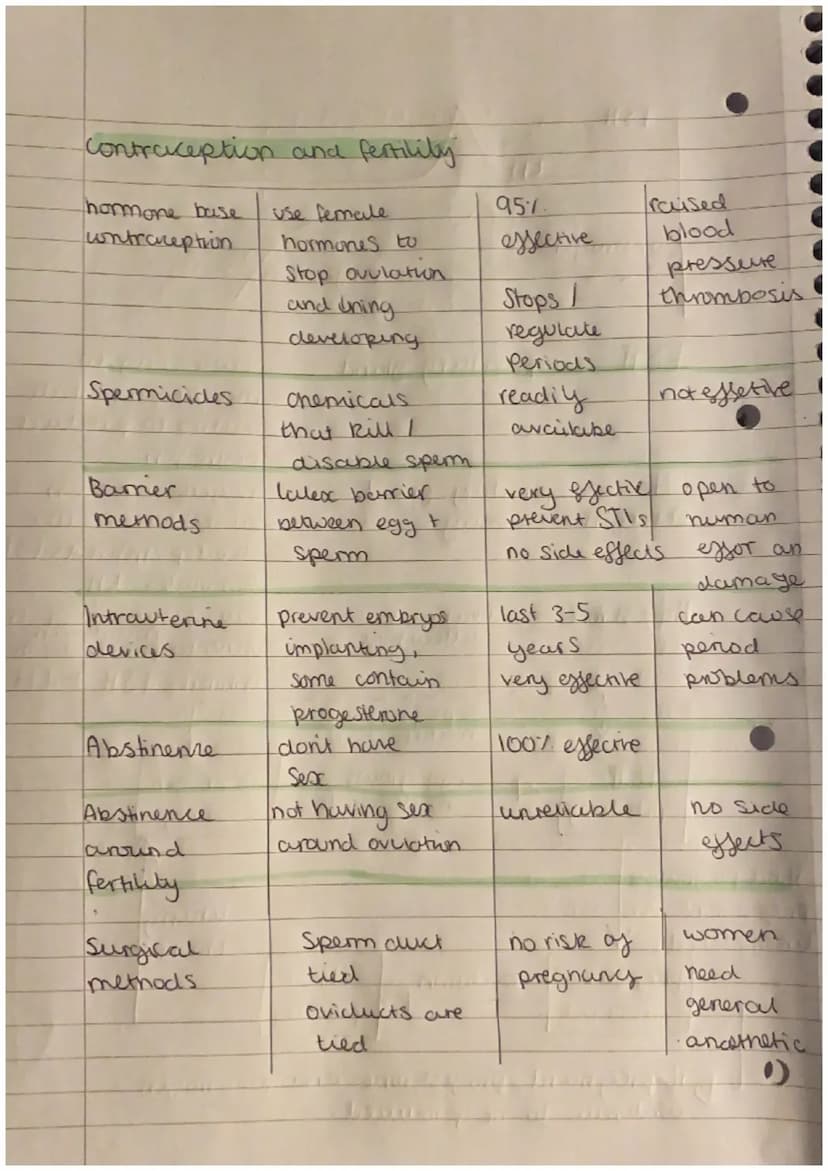 Contraception and fertility
hormone base use female 95% raised
contraception hormones to effective blood
stop ovulation pressure
and lining Stops / thrombosis
developing regulate
periods
Spermicides chemicals readily not effetive
that kill / available
disable sperm
Barrier latex barrier very effective open to
methods between egg + prevent STIs human
sperm no side effects error an
damage
Intrauterine prevent embryos last 3-5 can cause
devices implanting, years period
some contain very effective problems
progesterone
Abstinence don't have 100% effecive
sex
Abstinence not having sex unreliable no side
around around ovulation effects
fertility
Surgical Sperm duct no risk of women
methods tied pregnancy need
oviducts are general
tied anasthetic